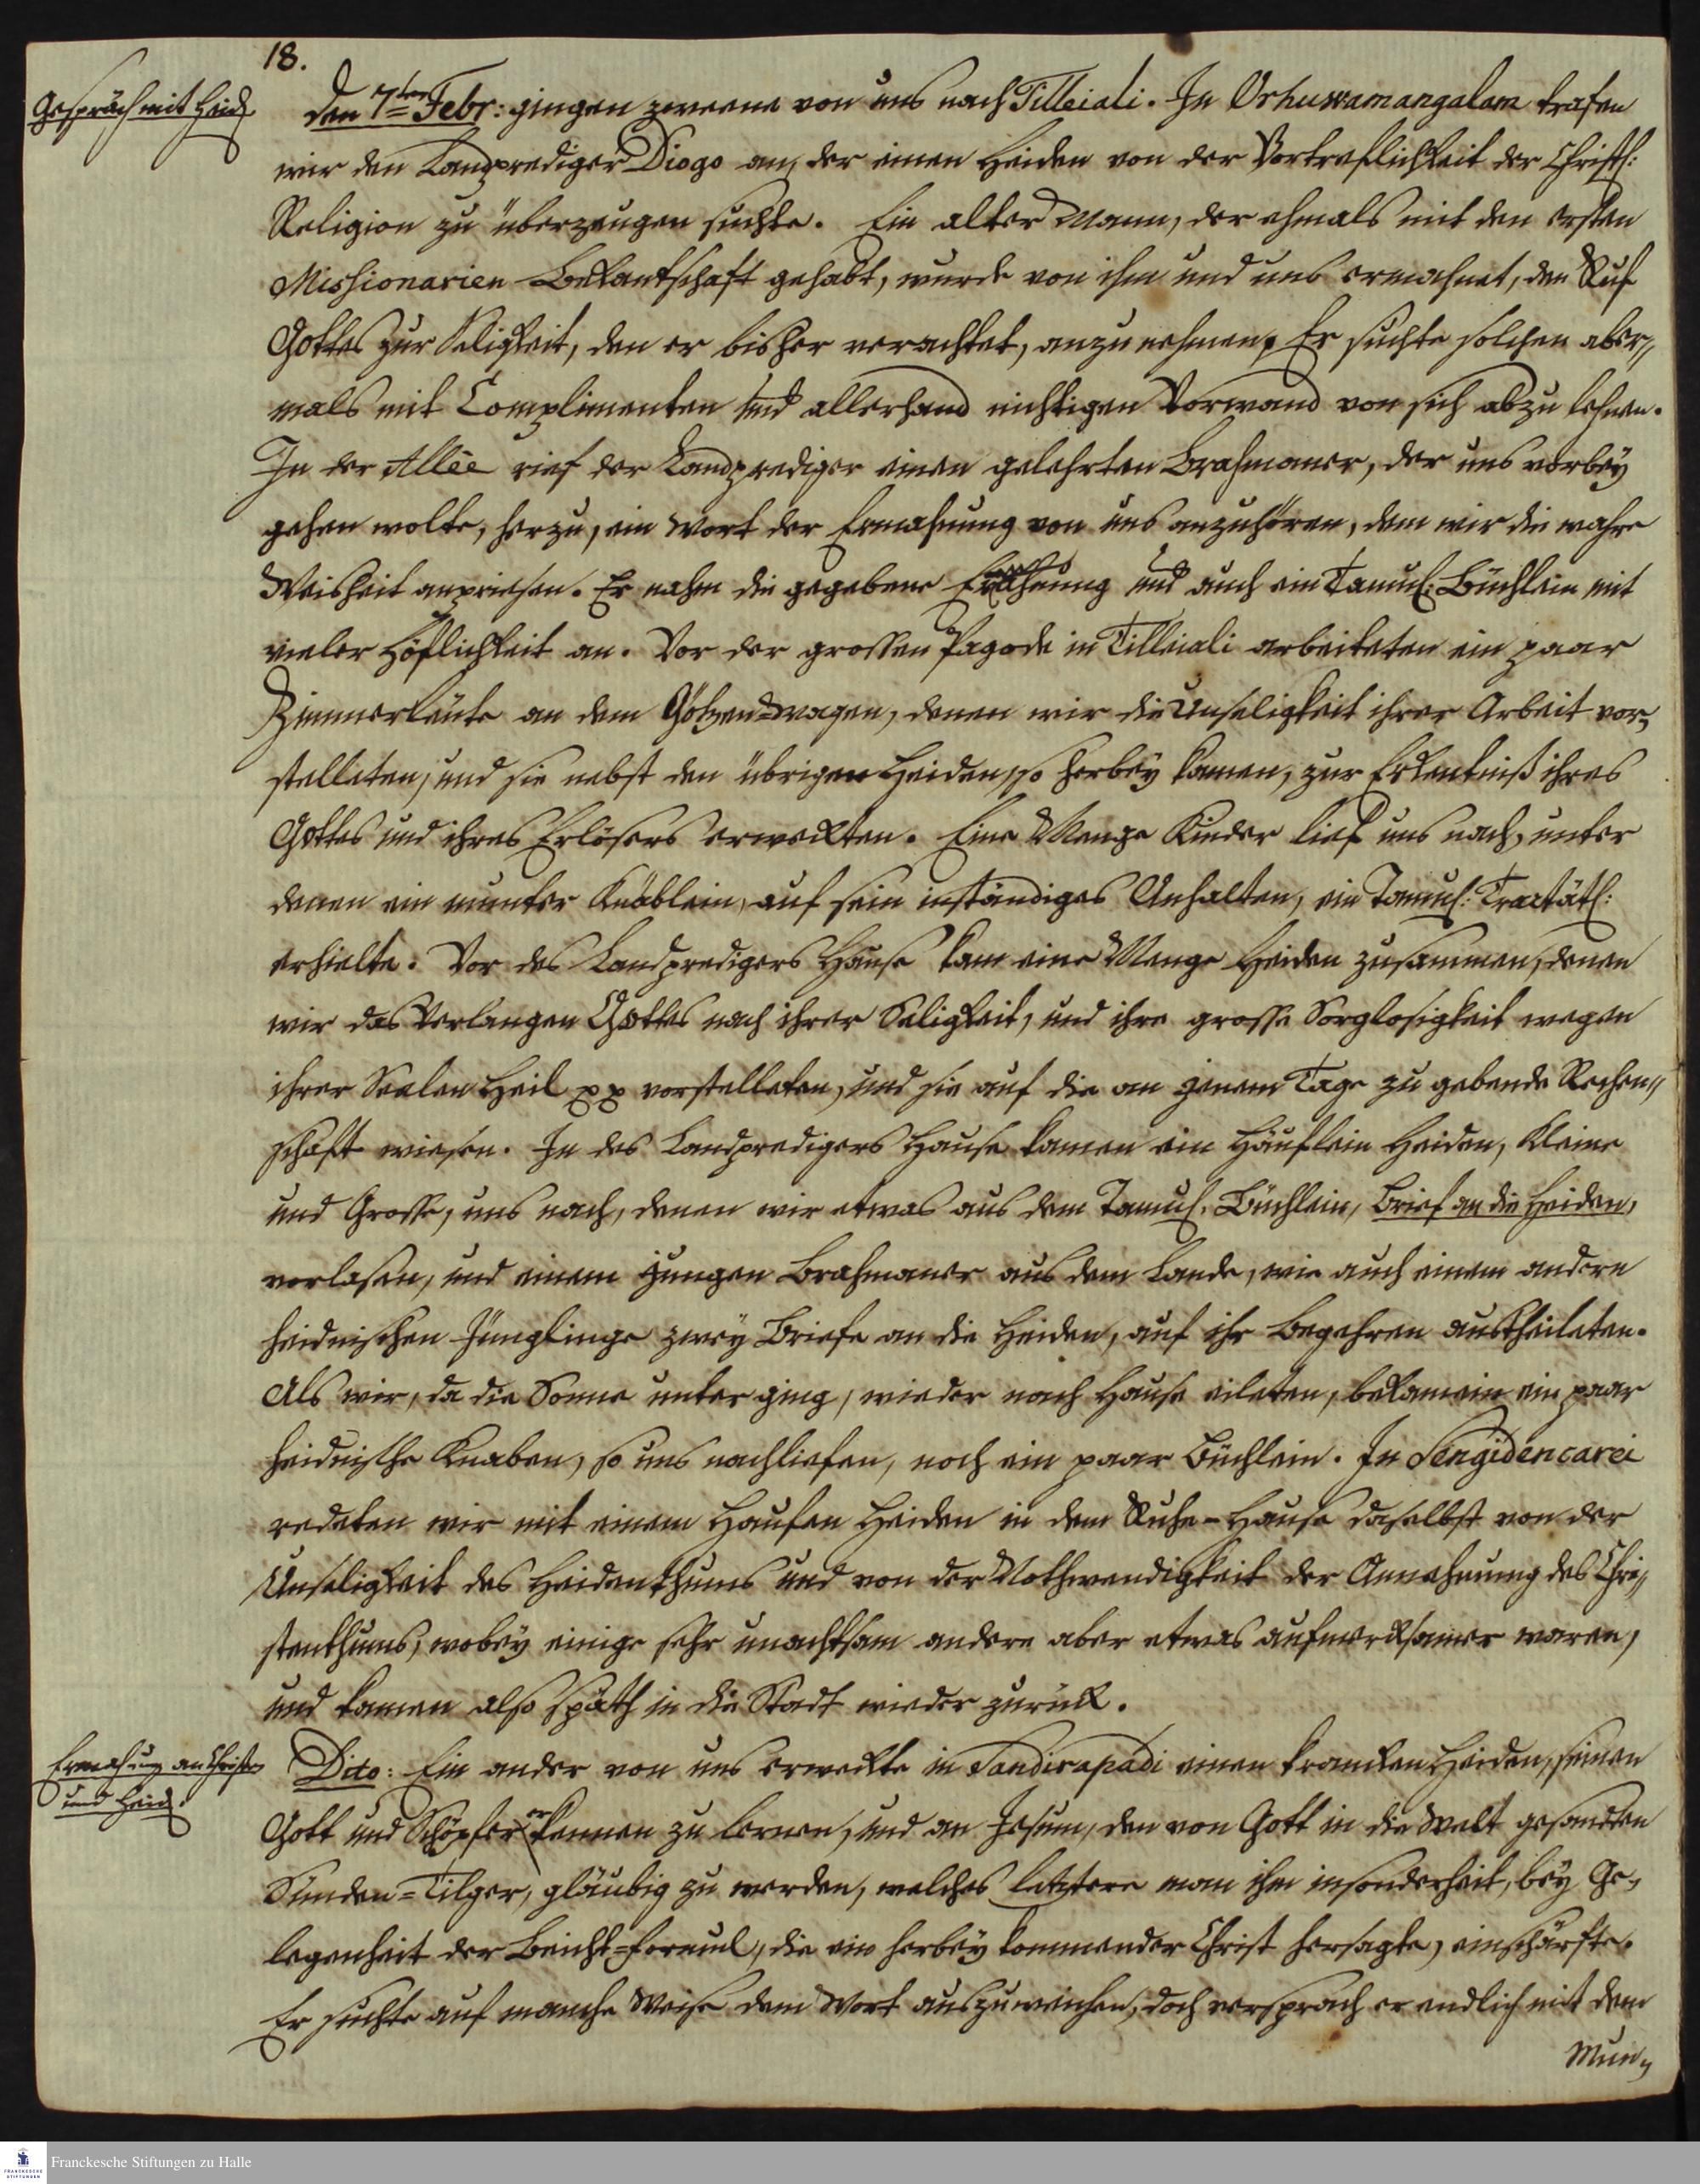 18.
Gespräch mit Heid.
den 7ten Febr: gingen zweene von uns nach Tilleiali. In Orhuwamangalam trafen
wir den Landprediger Diogo an, der einen Heiden von der Vortreflichkeit der Christl:
Religion zu überzeugen suchte. Ein alter Mann, der ehmals mit den ersten
Missionarien Bekantschaft gehabt, wurde von ihm und uns ermahnet, den Ruf
Gottes zur Seligkeit, den er bisher verachtet, anzunehmen. Er suchte solchen aber„
mals mit Complimenten und allerhand nichtigen Vorwand von sich abzulehnen.
In der Allée rief der Landprediger einen gelehrten Brahmaner, der uns vorbey
gehen wolte, herzu, ein Wort der Ermahnung von uns anzuhören, dem wir die wahre
Weisheit anpriesen. Er nahm die gegebene Ermahnung und auch ein Tamul: Büchlein mit
vieler Höflichkeit an. Vor der grossen Pagode in Tilleiali arbeiteten ein paar
Zimmerleute an dem Götzen=wagen, denen wir die Unseligkeit ihrer Arbeit vor„
stelleten, und sie nebst den übrigen Heiden, so herbey kamen, zur Erkentniß ihres
Gottes und ihres Erlösers erweckten. Eine Menge Kinder lief uns nach, unter
denen ein munter Knäblein, auf sein inständiges Anhalten, ein Tamul: Tractätl:
erhielte. Vor des Landpredigers Hause kam eine Menge Heiden zusammen, denen
wir das Verlangen Gottes nach ihrer Seligkeit, und ihre grosse Sorglosigkeit wegen
ihrer Seelen Heil pp vorstelleten, und sie auf die an jenem Tage zu gebende Rechen„
schaft wiesen. In des Landpredigers Hause kamen ein Häuflein Heiden, Kleine
und Grosse, uns nach, denen wir etwas aus dem Tamul. Büchlein, Brief an die Heiden,
vorlasen, und einem jungen Brahmaner aus dem Lande, wie auch einem andern
heidnischen Jünglinge zwey Briefe an die Heiden, auf ihr Begehren austheileten.
Als wir, da die Sonne unter ging, wieder nach Hause eileten, bekamen ein paar
heidnische Knaben, so uns nachliefen, noch ein paar Büchlein. In Sengidencarei
redeten wir mit einem Haufen Heiden in dem Ruhe-Hause daselbst von der
Unseligkeit des Heidenthums und von der Nothwendigkeit der Annehmung des Chri„
stenthums, wobey einige sehr unachtsam andere aber etwas aufmerksamer waren,
und kamen also späth in die Stadt wieder zurück.
Ermahnung an Christen
und Heid.
Dito: Ein ander von uns erweckte in Sandirapadi einen krancken Heiden, seinen
Gott und Schöpfer erkennen zu lernen, und an Jesum, den von Gott in die Welt gesandten
Sünden=Tilger, gläubig zu werden, welches letztere man ihm insonderheit, bey Ge„
legenheit der Beicht=formul, die ein herbey kommender Christ hersagte, einschärfte.
Er suchte auf manche Weise dem Wort auszuweichen, doch versprach er endlich mit dem
Mun„
Franckesche Stiftungen zu Halle